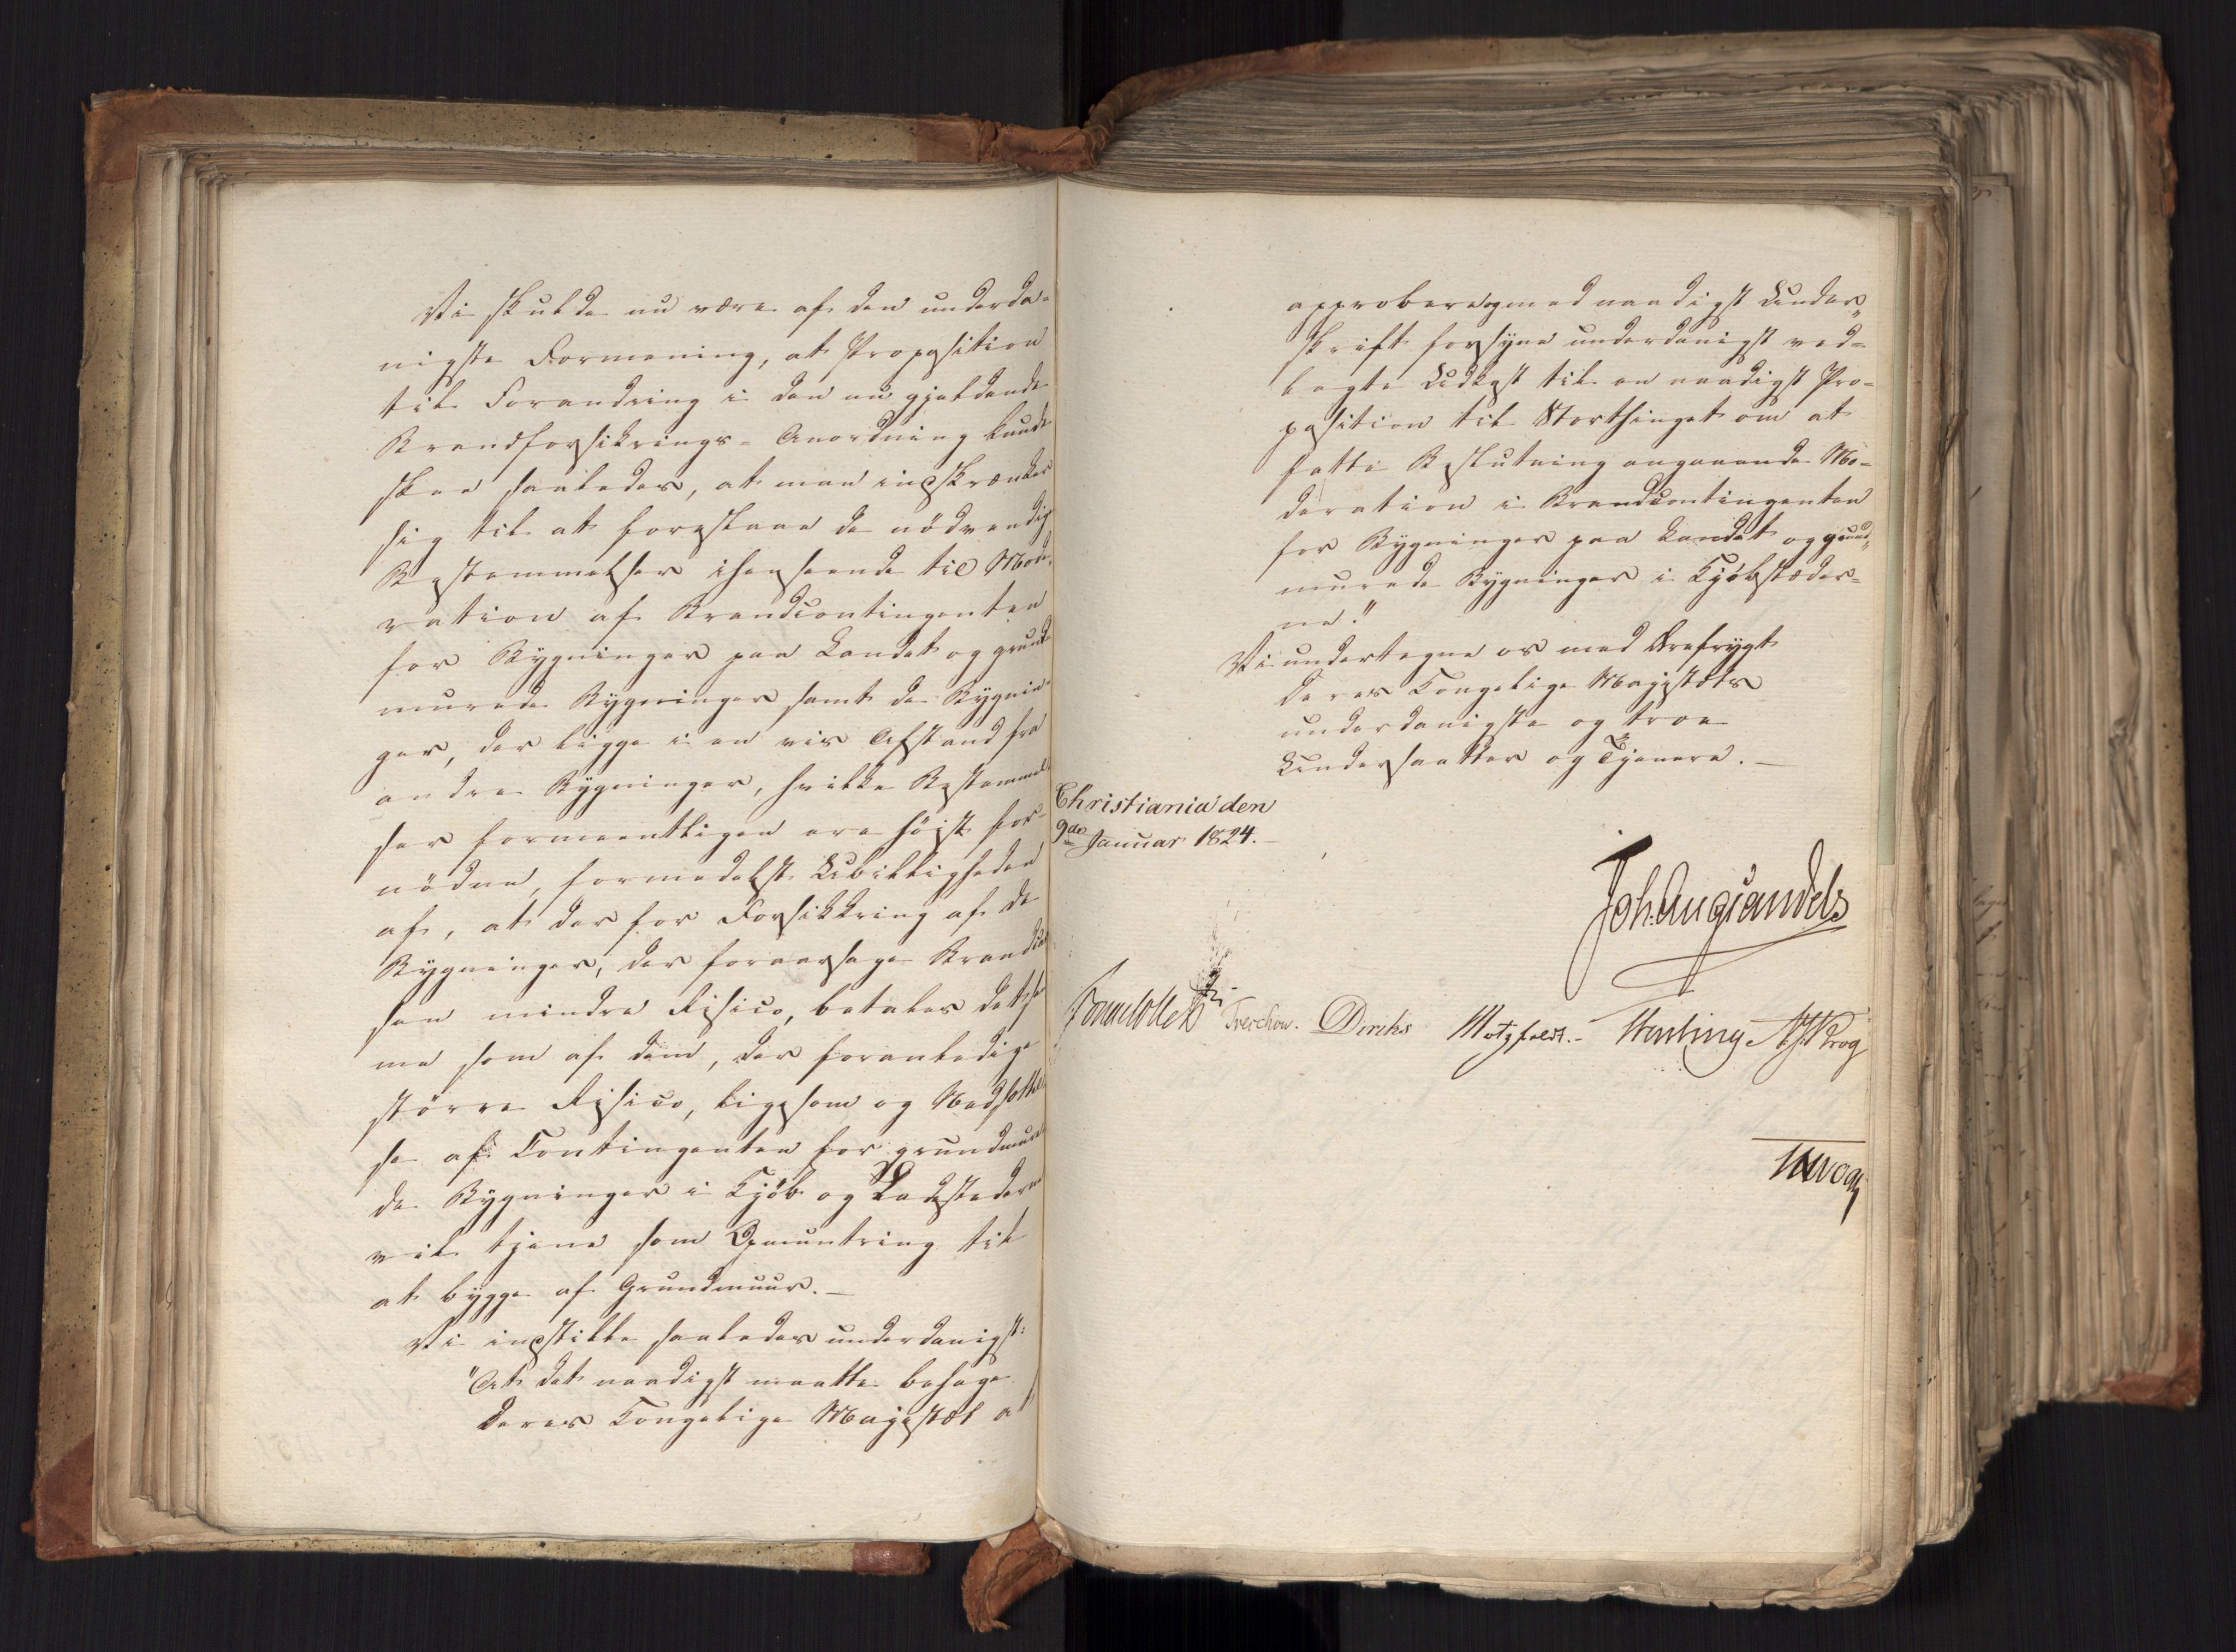 Vi skulde nu være af den underda-
nigste Formening, at Proposition
til Forandring i den nu gjeldende
Brandforsikrings-Anordning kunde
skee saaledes, at man indskrænker
sig til at foreslaae de nödvendig
Bestemmelser ihenseende til Mode-
ration af Brandcontingenten
for Bygninger paa Landet og grund
murede Bygninger samt de Bygnin-
ger, der ligge i en vis Afstand fra
andre Bygninger, hvilke Bestemmel-
ser formeentligen ere höist for-
nödne, formedelst Ubilligheden
af, at der for Forsikkring af de
Bygninger, der foraarsage Brandcas-
sen mindre Risico, betales det sam-
me som af dem, der foranledige
större Risico, ligesom og Nedsættel-
se af Contingenten for grundmure-
de Bygninger i Kjöb og Ladestederne
vil tjene som Opmuntring til
at bygge af Grundmuur.-
Vi indstille saaledes underdanigst:
"At det naadigst maatte behage
Deres Kongelige Majestæt at
approbere og med naadigst Under-
skrift forsyne underdanigst ved-
lagte Udkast til en naadigst Pro-
position til Storthinget om at
fatte Beslutning angaaende Mo-
deration i Brandcontingenten
for Bygninger paa Landet og grund-
murede Bygninger i Kjöbstæder-
ne."
Vi undertegne os med Ærefrygt
Deres Kongelige Majestæts
underdanigste og troe
Undersaatter og Tjenere.-
Christiania den
9de Januar 1824.-
Joh. Aug. Sandels
Sommelldt Treschow. Diriks Motzfeldt.- Hartling JHKrog